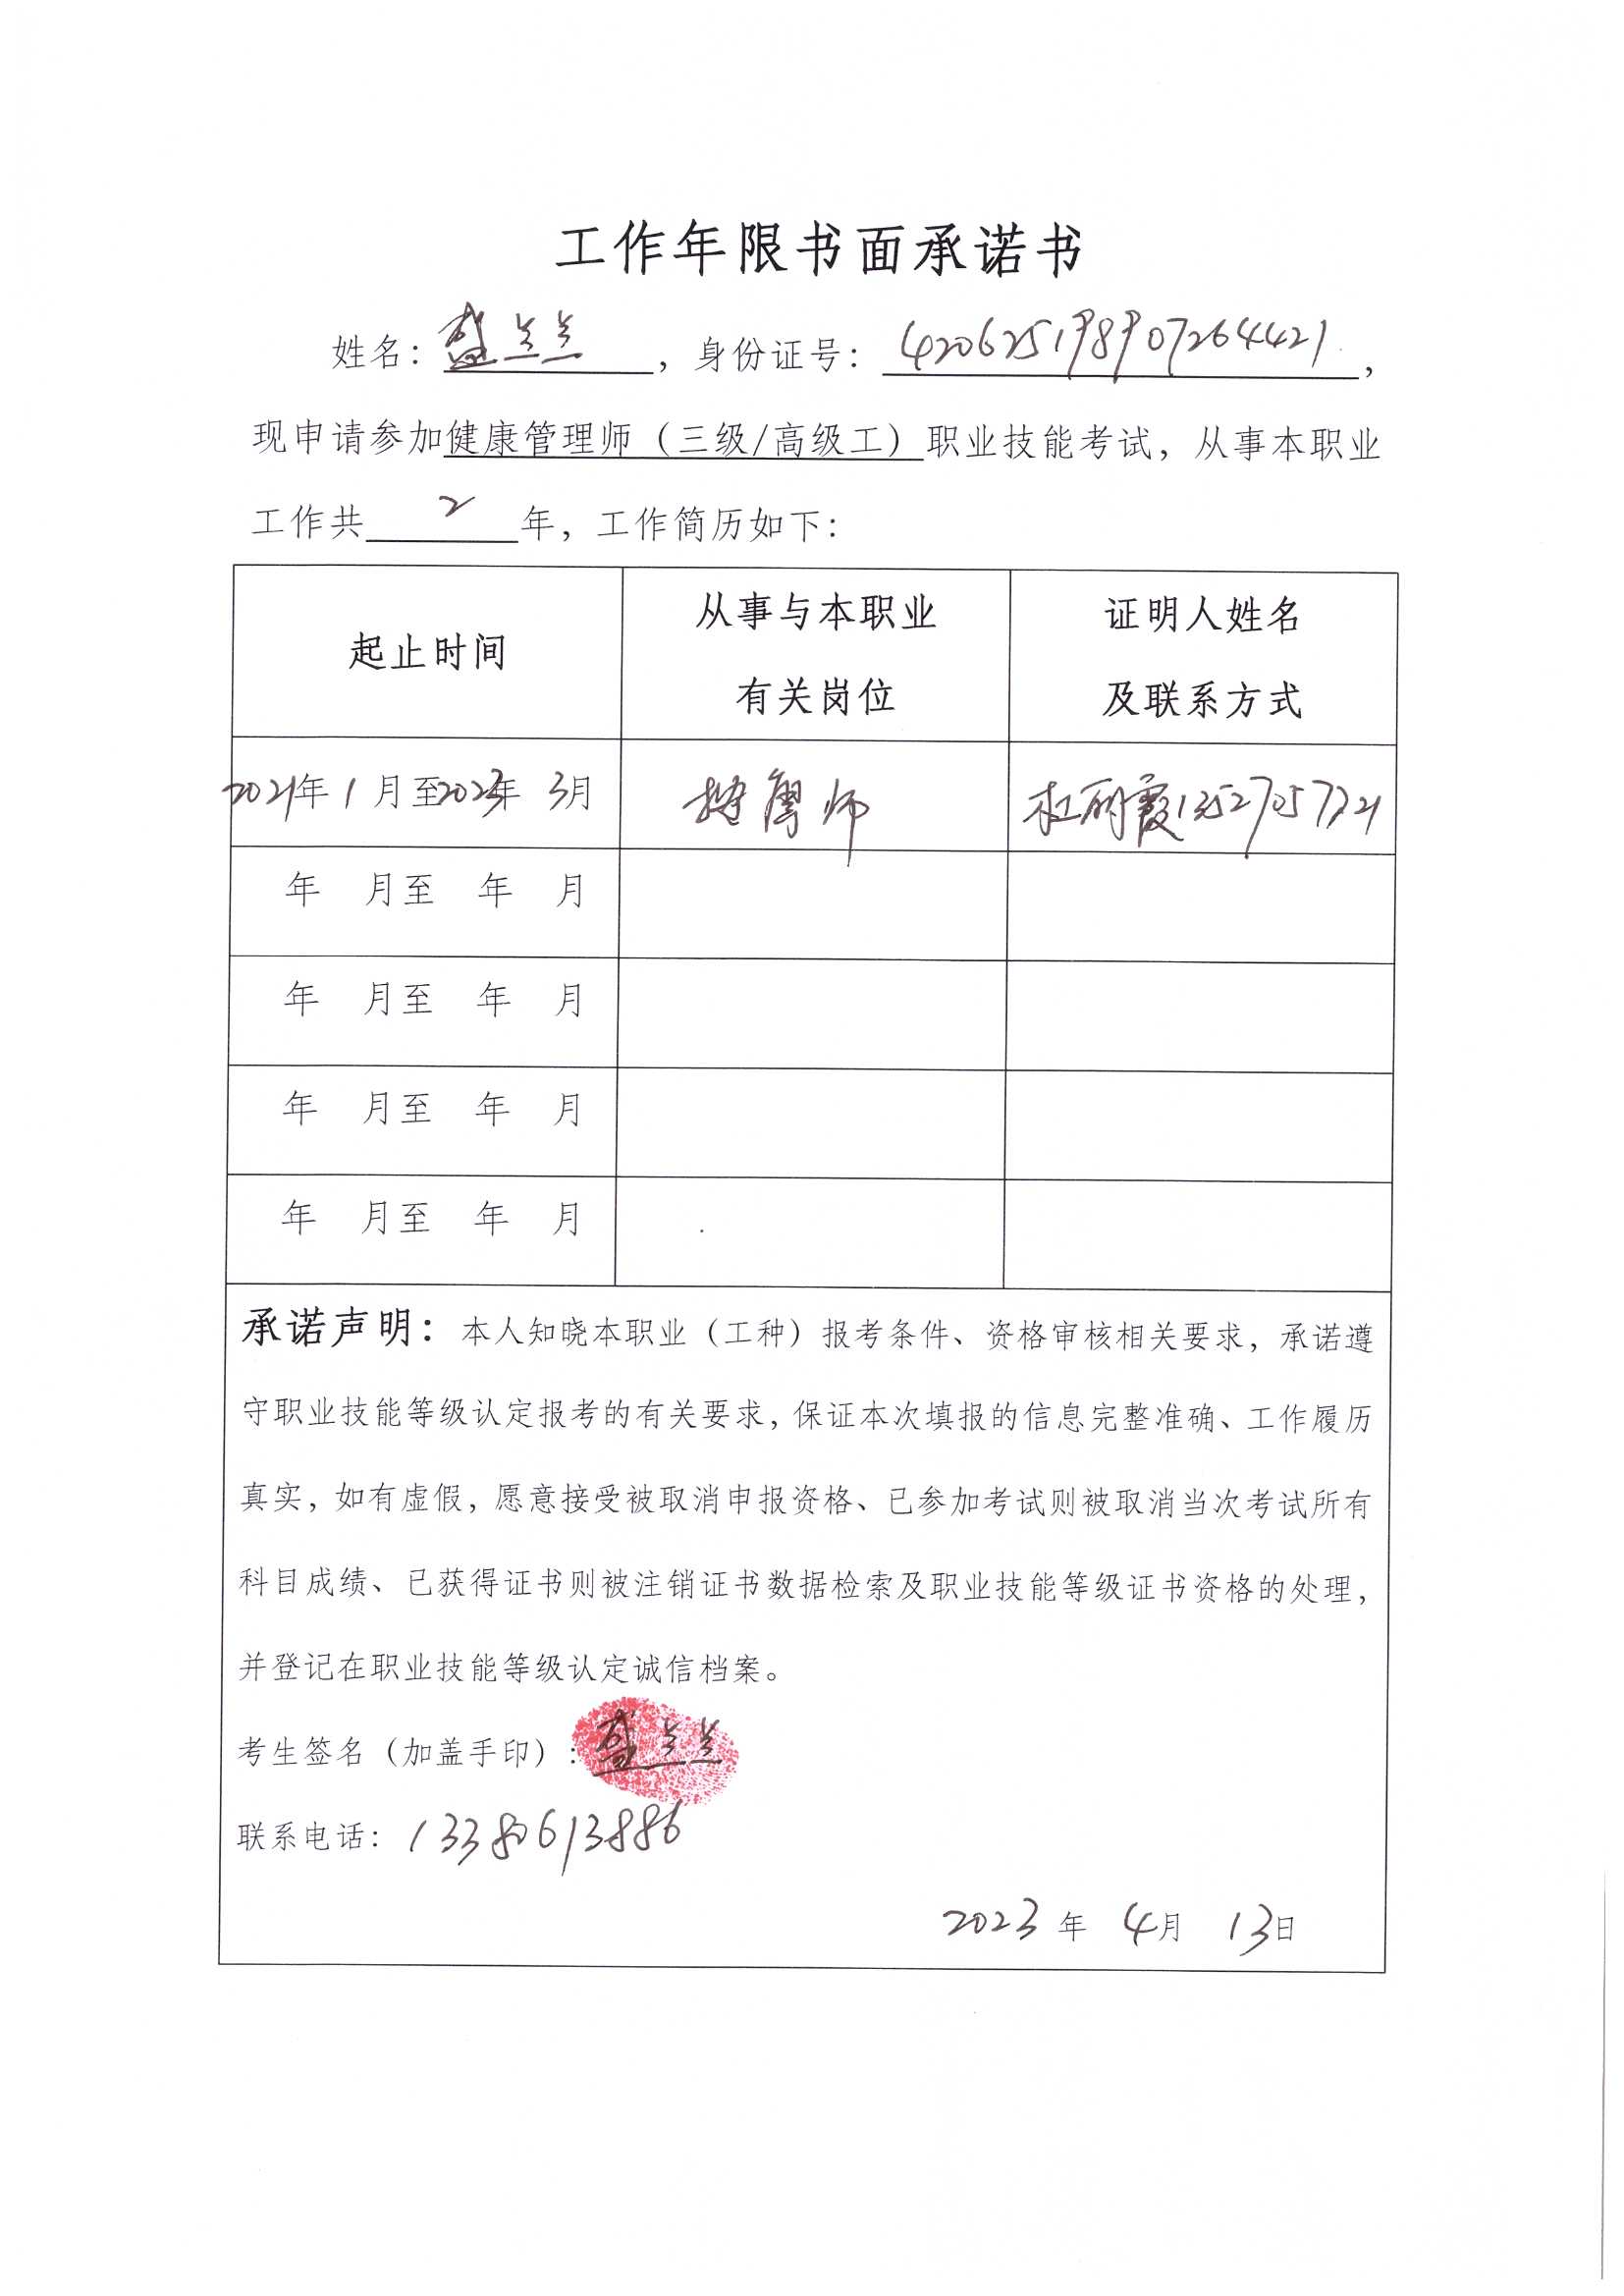 工作年限书面承诺书
姓名：盛兰兰，身份证号：420625198907264421，
现申请参加健康管理师（三级/高级工）职业技能考试，从事本职业
工作共 2 年，工作简历如下：
起止时间
从事与本职业
有关岗位
证明人姓名
及联系方式
2021年1月至2023年3月
师
杜丽霞
年 月至 年 月
年 月至 年 月
年 月至 年 月
年 月至 年 月
承诺声明：本人知晓本职业（工种）报考条件、资格审核相关要求，承诺遵
守职业技能等级认定报考的有关要求，保证本次填报的信息完整准确、工作履历
真实，如有虚假，愿意接受被取消申报资格、已参加考试则被取消当次考试所有
科目成绩、已获得证书则被注销证书数据检索及职业技能等级证书资格的处理，
并登记在职业技能等级认定诚信档案。
考生签名（加盖手印）：盛兰兰
联系电话：
2023年 4月 13日